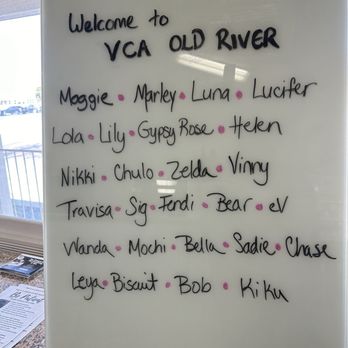 Welcome to
VCA OLD RIVER
Maggie • Marley • Luna • Lucifer
Lola • Lily • Gypsy Rose • Helen
Nikki • Chulo • Zelda • Vinny
Travisa • Sig • Fendi • Bear • eV
Wanda • Mochi • Bella • Sadie • Chase
Leya • Biscuit • Bob • Kiku